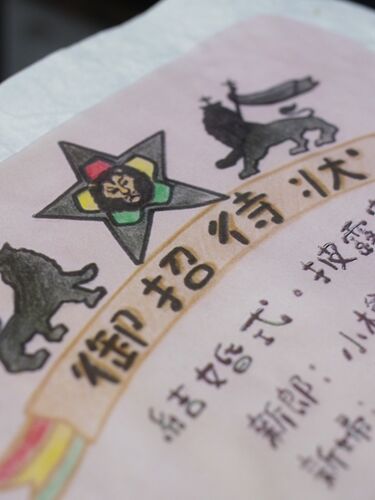 御招待状
結婚式。披露
新郎：小
新婦：